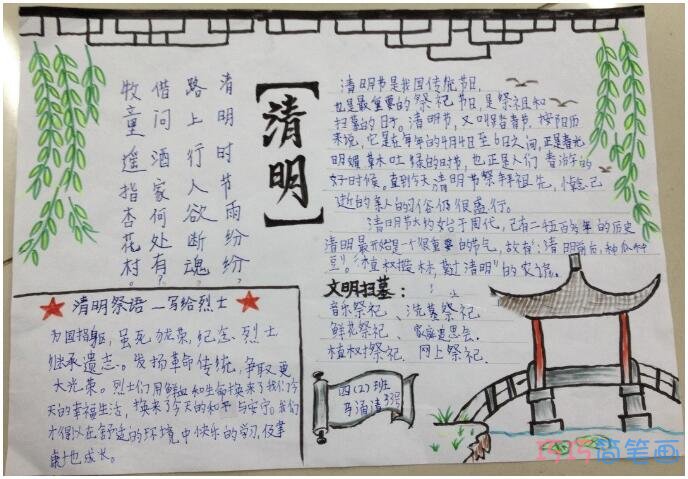 清明时节雨纷纷,
路上行人欲断魂。
借问酒家何处有?
牧童遥指杏花村。
【清明】
清明节是我国传统节日,
也是最重要的祭祀节日,是祭祖和
扫墓的日子。清明节,又叫踏青节,按阳历
来说,它是在每年的4月4日至6日之间,正是春光
明媚草木吐绿的时节,也正是人们春游的
好时候。直到今天,清明节祭拜祖先,悼念已
逝的亲人的习俗仍很盛行。
清明节大约始于周代,已有二千五百年的历史
清明最开始是一个很重要的节气,故有:清明前后,种瓜种
豆。"植树造林,莫过清明"的农谚。
文明扫墓:
音乐祭祀、洗墓祭祀
鲜花祭祀、家庭追思会.
植树祭祀、网上祭祀.
清明祭语—写给烈士
为国捐躯,虽死犹荣,纪念烈士
继承遗志。发扬革命传统,争取更
大光荣。烈士们用鲜血和生命换来了我们今
天的幸福生活,换来了今天的和平与安宁。我们
才得以在舒适的环境中快乐的学习,健
康地成长。
四(2)班
马涌清
巧巧简笔画